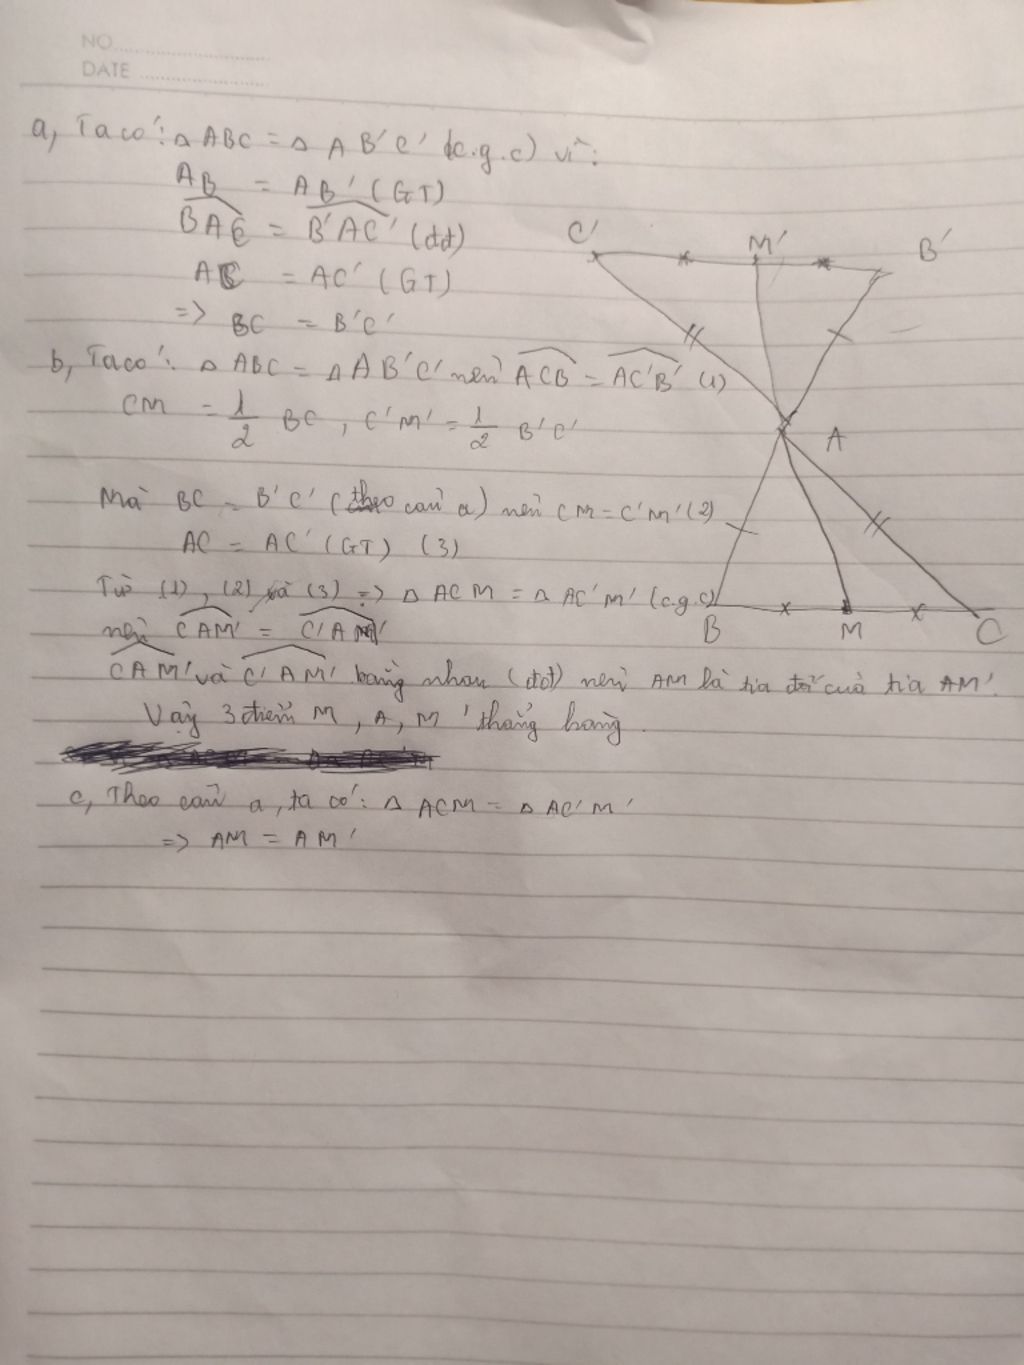 NO
DATE
a, Ta có: ▵ ABC = ▵ AB'C' (c.g.c) vì:
AB = AB' (GT)
BAC = B'AC' (đđ)
AC = AC' (GT)
=> BC = B'C'
b, Ta có: ▵ ABC = ▵ AB'C' nên ACB = AC'B' (1)
CM = 1/2 BC, C'M' = 1/2 B'C'
Mà BC = B'C' (theo câu a) nên CM = C'M' (2)
AC = AC' (GT) (3)
Từ (1), (2) và (3) => ▵ ACM = ▵ AC'M' (c.g.c)
nên CAM = C'AM'
CAM và C'AM' bằng nhau (đđ) nên AM là tia đối của tia AM'.
Vậy 3 điểm M, A, M' thẳng hàng.
c, Theo câu a, ta có: ▵ ACM = ▵ AC'M'
=> AM = AM'
C' M' B'
A
B M C